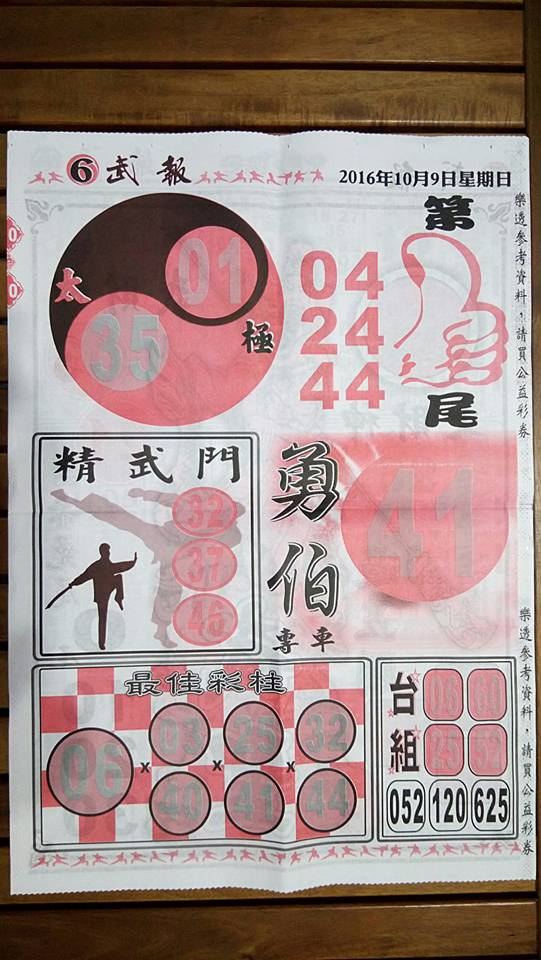 6 武報
2016年10月9日星期日
太極
01
35
04
24
44
第
尾
樂透參考資料，請買公益彩券
精武門
32
37
46
勇伯
專車
41
樂透參考資料，請買公益彩券
最佳彩柱
06 x 03 x 25 x 32
40 41 44
台組
25 52
052 120 625